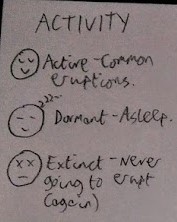 ACTIVITY
Active - Common
eruptions.
zzz
Dormant - Asleep.
Extinct - Never
going to erupt
(again)